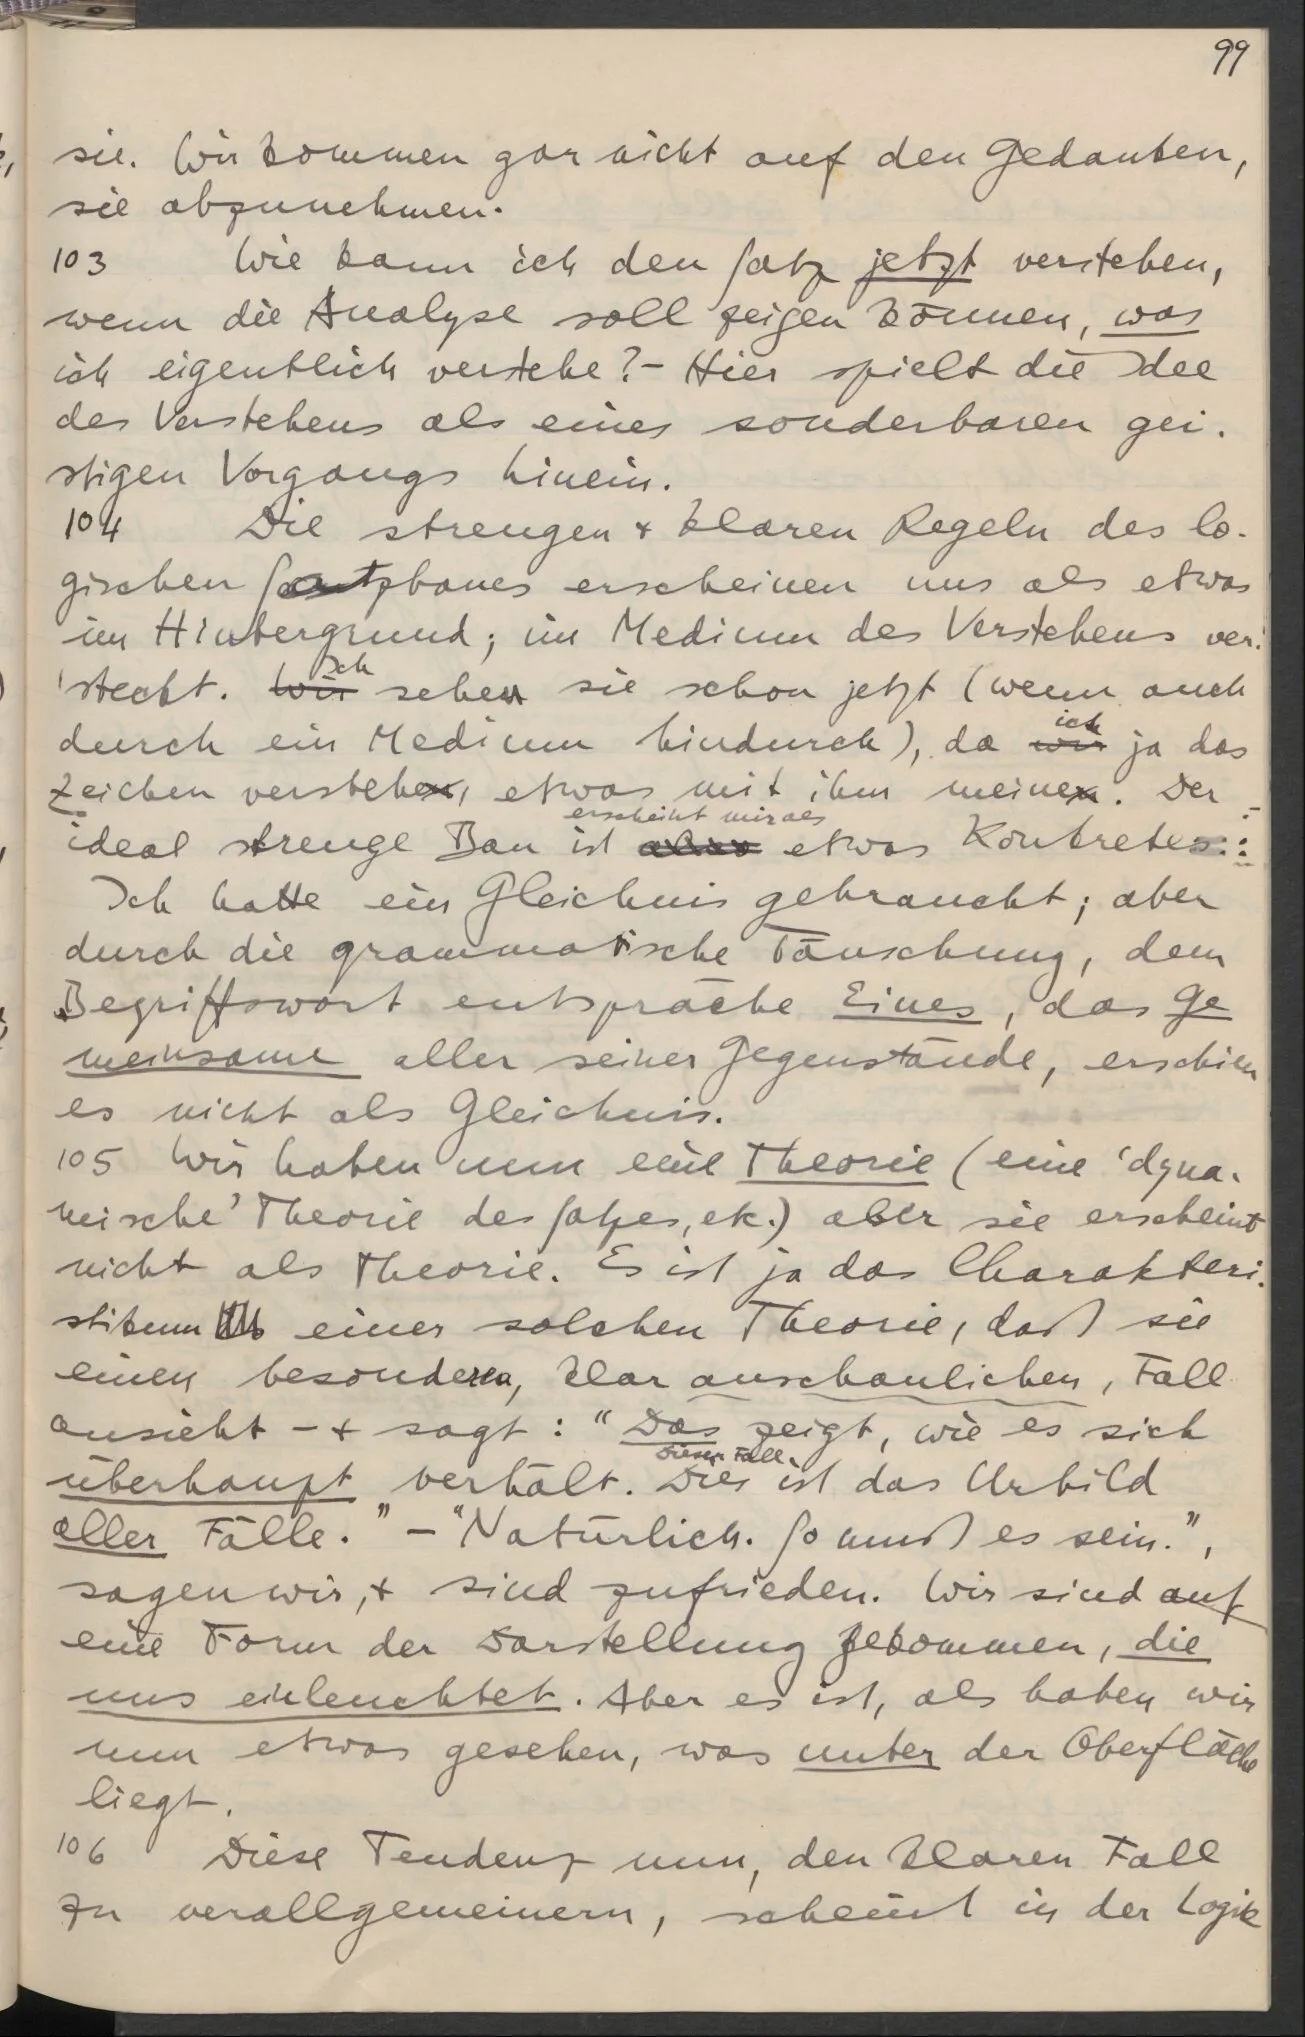 99
sie. Wir kommen gar nicht auf den Gedanken,
sie abzunehmen.
103 Wie kann ich den Satz jetzt verstehen,
wenn die Analyse soll zeigen können, was
ich eigentlich verstehe? – Hier spielt die Idee
des Verstehens als eines sonderbaren gei-
stigen Vorgangs hinein.
104 Die strengen + klaren Regeln des lo-
gischen Satzbaues erscheinen uns als etwas
im Hintergrund; im Medium des Verstehens ver-
steckt. Wir Ich sehen sie schon jetzt (wenn auch
durch ein Medium hindurch), da wir ich ja das
Zeichen verstehen, etwas mit ihm meinen. Der
ideal strenge Bau ist erscheint mir als etwas Konkretes:
Ich hatte ein Gleichnis gebraucht; aber
durch die grammatische Täuschung, dem
Begriffswort entspräche Eines, das Ge
meinsame aller seiner Gegenstände, erschien
es nicht als Gleichnis.
105 Wir haben nun eine Theorie (eine 'dyna-
mische' Theorie des Satzes, etc.) aber sie erscheint
nicht als Theorie. Es ist ja das Charakteri-
stikum einer solchen Theorie, daß sie
einen besondern, klar anschaulichen, Fall
ansieht – + sagt: "Das zeigt, wie es sich
überhaupt verhält. Dies Dieser Fall ist das Urbild
aller Fälle." – "Natürlich. So muß es sein.",
sagen wir, + sind zufrieden. Wir sind auf
eine Form der Darstellung gekommen, die
uns einleuchtet. Aber es ist, als haben wir
nun etwas gesehen, was unter der Oberfläche
liegt.
106 Diese Tendenz nun, den klaren Fall
zu verallgemeinern, scheint in der Logik